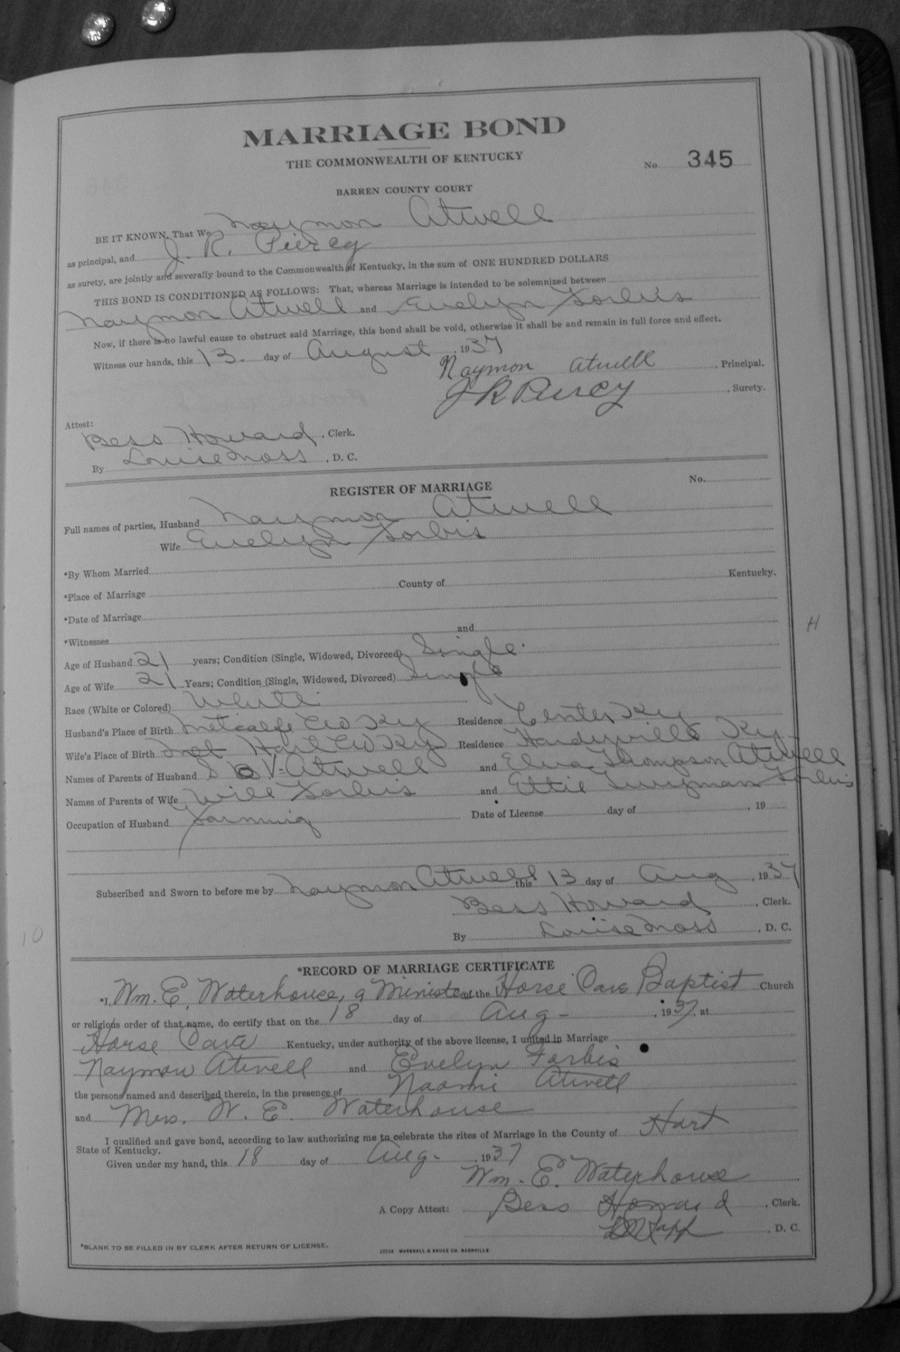 MARRIAGE BOND
THE COMMONWEALTH OF KENTUCKY
No. 345
BARREN COUNTY COURT
BE IT KNOWN, That We Naymon Atwell
as principal, and J. R. Piercy
as surety, are jointly and severally bound to the Commonwealth of Kentucky, in the sum of ONE HUNDRED DOLLARS
THIS BOND IS CONDITIONED AS FOLLOWS: That, whereas Marriage is intended to be solemnized between
Naymon Atwell and Evelyn Forbis
Now, if there is no lawful cause to obstruct said Marriage, this bond shall be void, otherwise it shall be and remain in full force and effect.
Witness our hands, this 13 day of August, 1937
Naymon Atwell, Principal.
J R Piercy, Surety.
Attest:
Bess Howard, Clerk.
By Louise Moss, D. C.
REGISTER OF MARRIAGE
No.
Full names of parties, Husband Naymon Atwell
Wife Evelyn Forbis
*By Whom Married
*Place of Marriage County of Kentucky.
*Date of Marriage
*Witnesses and
Age of Husband 21 years; Condition (Single, Widowed, Divorced) Single.
Age of Wife 21 Years; Condition (Single, Widowed, Divorced) Single
Race (White or Colored) White
Husband's Place of Birth Metcalfe Co Ky Residence Center Ky
Wife's Place of Birth Hart Co Ky Residence Hardyville Ky
Names of Parents of Husband S B V. Atwell and Elva Thompson Atwell
Names of Parents of Wife Will Forbis and Ettie Forbis
Occupation of Husband Farming Date of License day of , 19
Subscribed and Sworn to before me by Naymon Atwell this 13 day of Aug, 1937
Bess Howard, Clerk.
By Louise Moss, D. C.
*RECORD OF MARRIAGE CERTIFICATE
*I, Wm. E. Waterhouse, a Minister of the Horse Cave Baptist Church
or religious order of that name, do certify that on the 18 day of Aug-, 1937, at
Horse Cave Kentucky, under authority of the above license, I united in Marriage
Naymon Atwell and Evelyn Forbis
the persons named and described therein, in the presence of Naomi Atwell
and Mrs. W. E. Waterhouse
I qualified and gave bond, according to law authorizing me to celebrate the rites of Marriage in the County of Hart
State of Kentucky.
Given under my hand, this 18 day of Aug-, 1937
Wm. E. Waterhouse
A Copy Attest: Bess Howard, Clerk.
D. C.
*BLANK TO BE FILLED IN BY CLERK AFTER RETURN OF LICENSE.
H
10